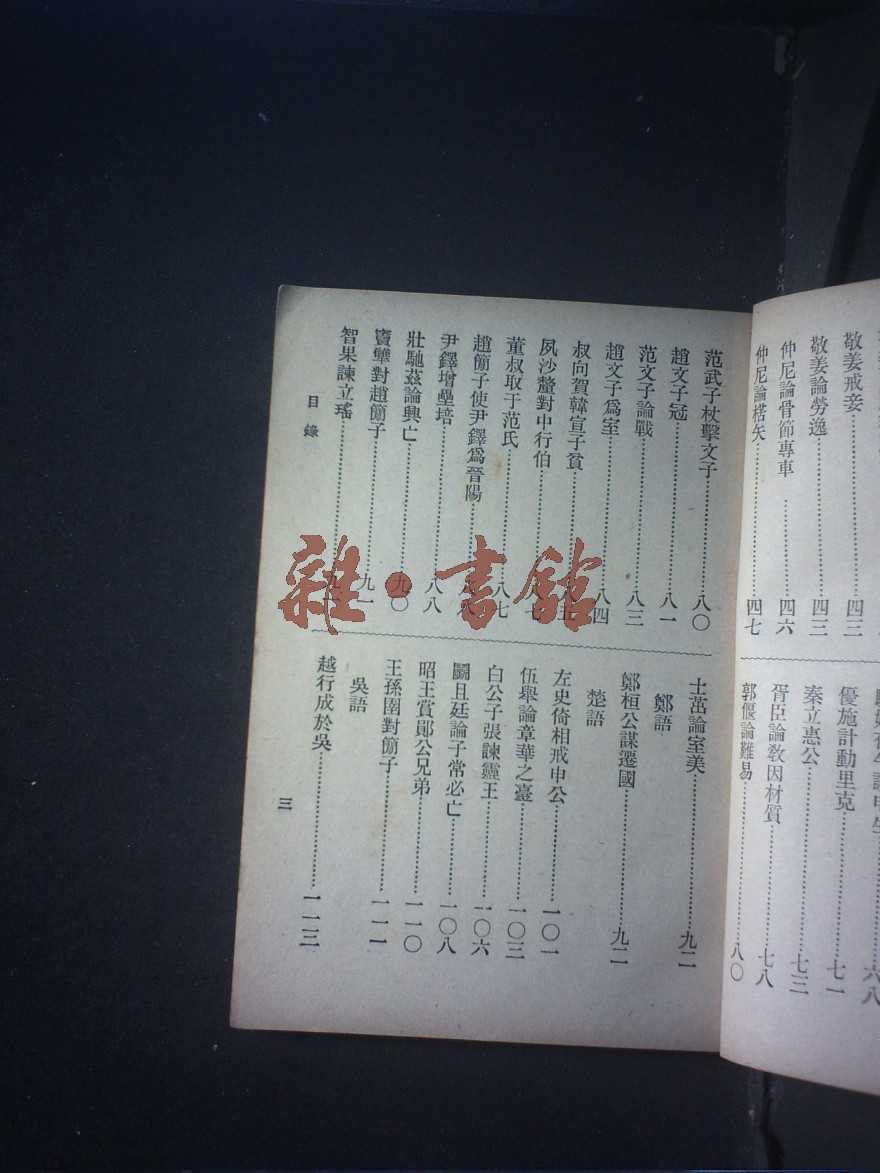 敬姜戒妾……四三
敬姜論勞逸……四三
仲尼論骨節專車……四六
仲尼論楛矢……四七
優施計動里克……七一
秦立惠公……七三
胥臣論敎因材質……七八
郭偃論難易……八〇
范武子杖擊文子……八〇
趙文子冠……八一
范文子論戰……八三
趙文子爲室……八四
叔向賀韓宣子貧
夙沙釐對中行伯
董叔取于范氏……八七
趙簡子使尹鐸爲晉陽
尹鐸增壘培……八八
壯馳茲論興亡……九〇
竇犨對趙簡子……九一
智果諫立瑤
士蔿論室美……九二
鄭語
鄭桓公謀遷國……九二
楚語
左史倚相戒申公……一〇一
伍舉論章華之臺……一〇三
白公子張諫靈王……一〇六
鬭且廷論子常必亡……一〇八
昭王賞鄖公兄弟……一一〇
王孫圉對簡子……一一一
吳語
越行成於吳……一一三
目錄
三
雜·書館